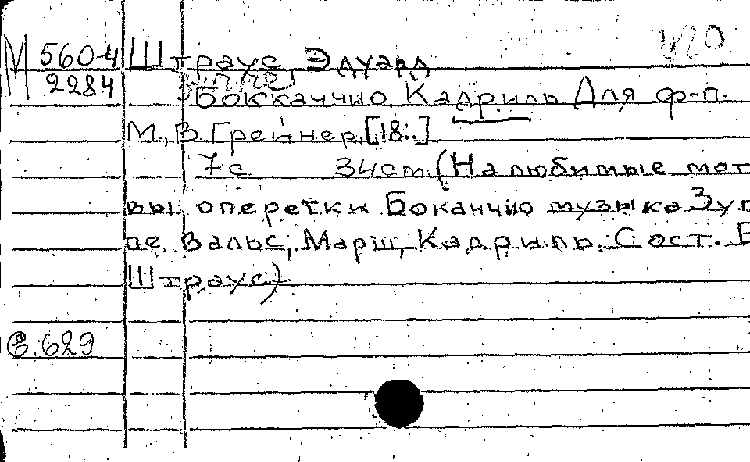 М 5604 Штраус, Эдуард
2284
Боккаччио Кадриль Для ф-п.
М., В. Грейнер, [18:.]
7с 34cm. (На любимые мот
вы оперетки Боканчио музыка Зуп
пе. Вальс, Марш, Кадриль. Сост. Е
Штраус)
629